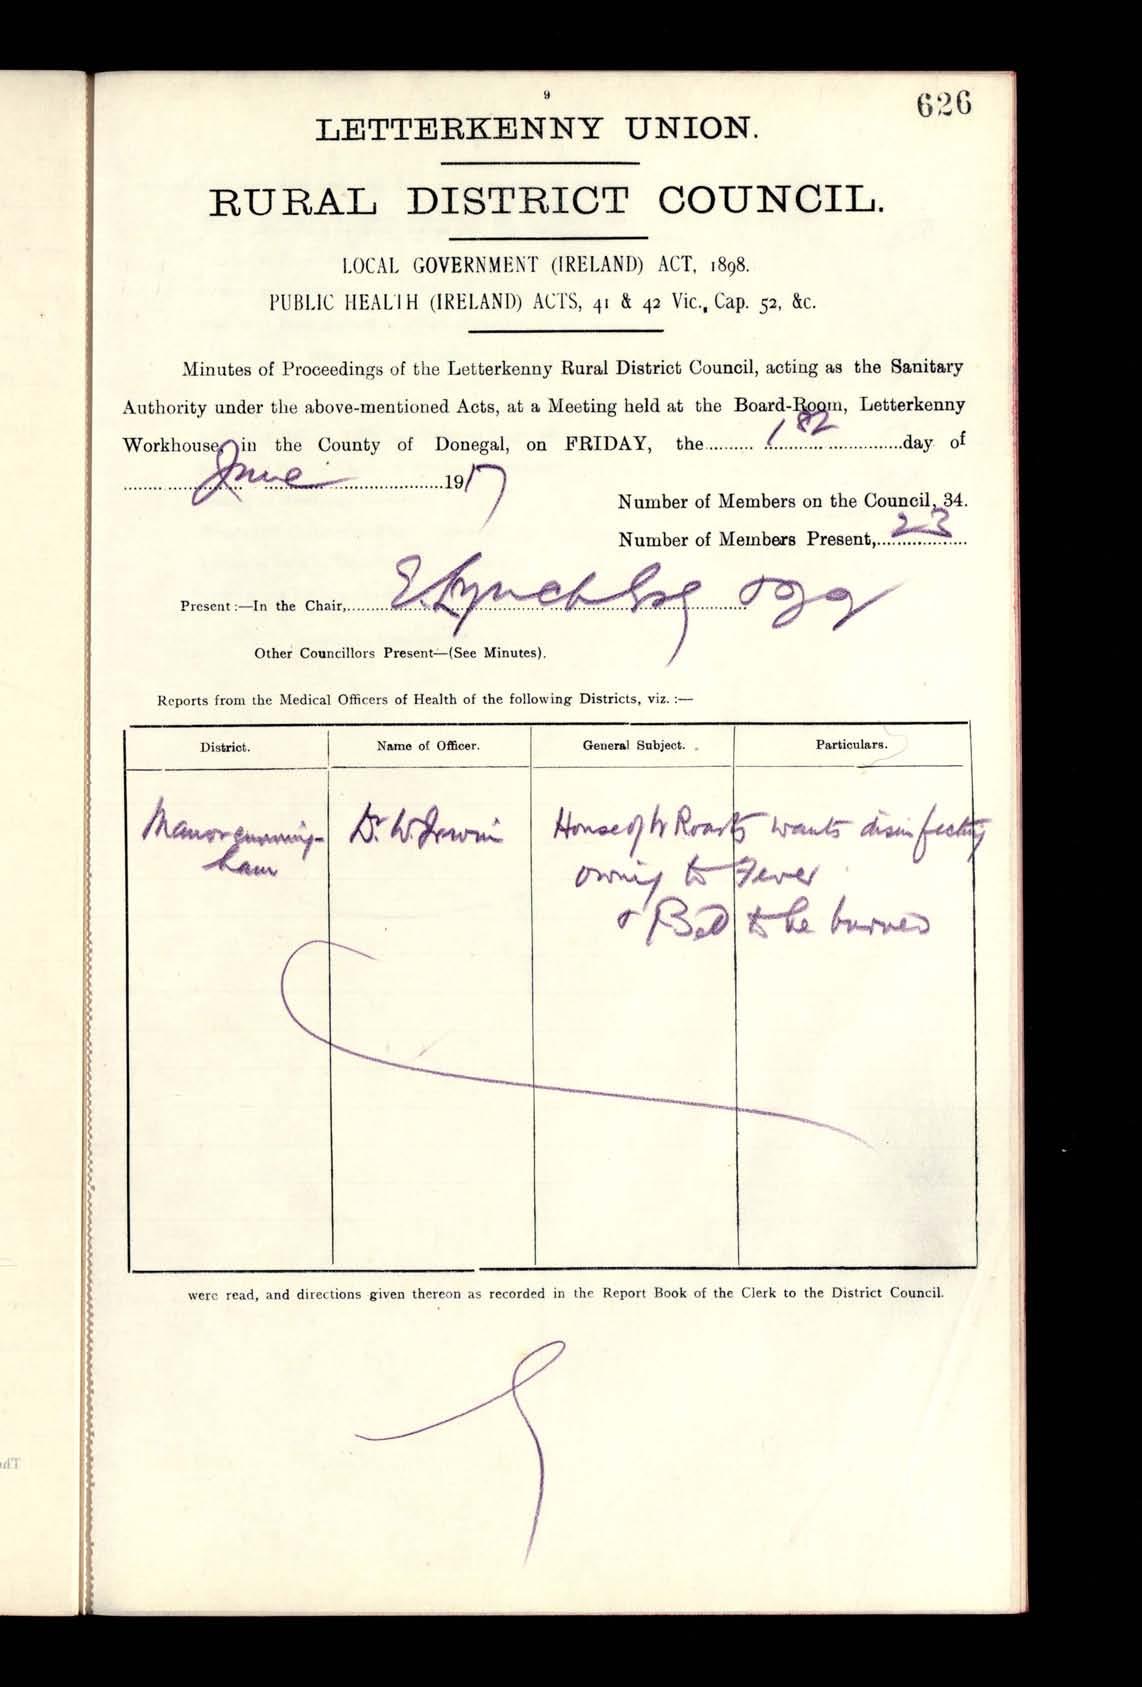 9
626
LETTERKENNY UNION.
RURAL DISTRICT COUNCIL.
LOCAL GOVERNMENT (IRELAND) ACT, 1898.
PUBLIC HEALTH (IRELAND) ACTS, 41 & 42 Vic., Cap. 52, &c.
Minutes of Proceedings of the Letterkenny Rural District Council, acting as the Sanitary
Authority under the above-mentioned Acts, at a Meeting held at the Board-Room, Letterkenny
Workhouse, in the County of Donegal, on FRIDAY, the 1st day of
June 1917
Number of Members on the Council, 34.
Number of Members Present, 23
Present:—In the Chair, E. Lynch Esq
Other Councillors Present—(See Minutes).
Reports from the Medical Officers of Health of the following Districts, viz. :—
District. Name of Officer. General Subject. Particulars.
Manorcunning- Dr W. Irwin House of W wants disinfecting
ham owing to Fever
& Bed to be burned
were read, and directions given thereon as recorded in the Report Book of the Clerk to the District Council.